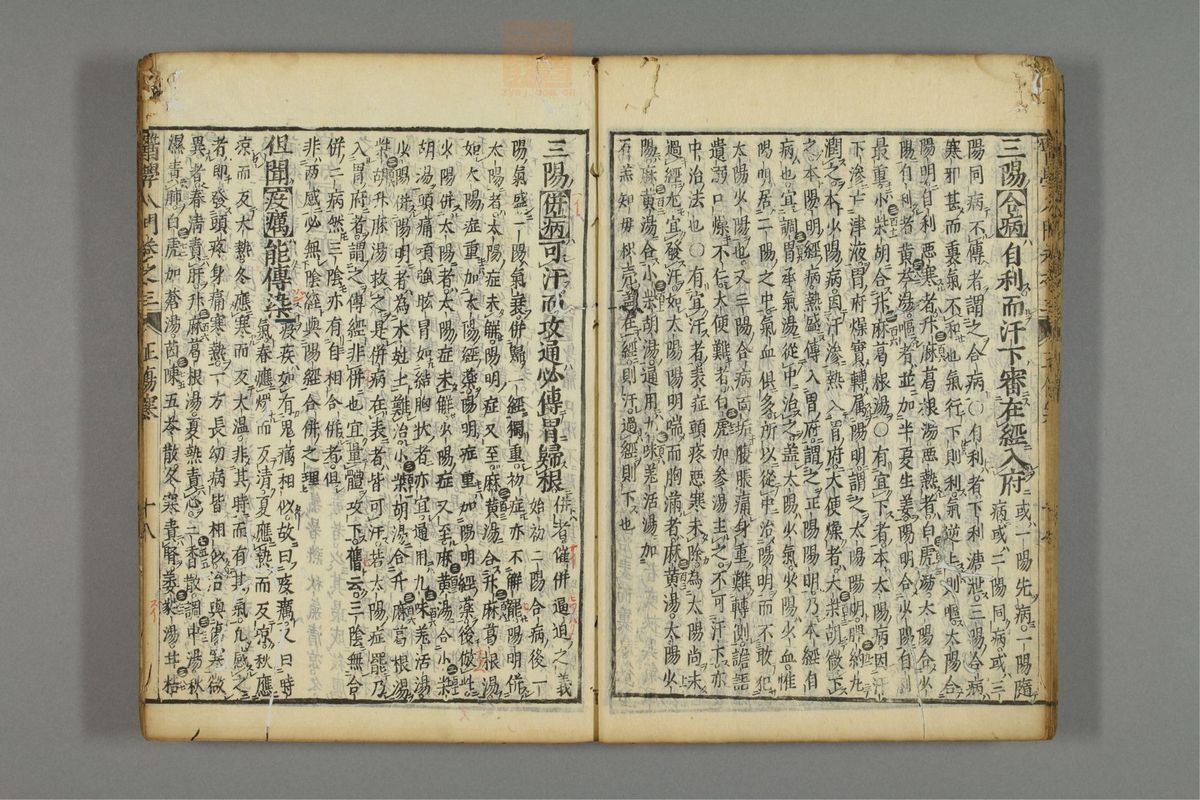 三陽合病自利而汗下審在經入府或一陽先病一陽隨
病或二陽同病或三
陽同病不傳者謂之合病○有利者下利溏泄三陽合病
寒邪甚而裏氣不和也氣行下則利氣逆上則嘔太陽合
陽明自利惡寒者升麻葛根湯惡熱者白虎湯太陽合少
陽自利者黃芩湯嘔者並加半夏生姜陽明合少陽自利
最重小柴胡合升麻葛根湯○有宜下者本太陽病因汗
下滲亡津液胃府燥實轉屬陽明謂之太陽陽明脾約丸
潤之本少陽病因汗滲熱入胃府大便燥者大柴胡微下
之本陽明經病熱盛傳入胃府謂之正陽陽明乃本經自
病也宜調胃承氣湯從中治之盖太陽少氣少陽少血惟
陽明居二陽之中氣血俱多所以從中治陽明而不敢犯
太陽少陽也又三陽合病面垢腹脹痛身重難轉側譫語
遺溺口燥不仁大便難者白虎加參湯主之不可汗下亦
中治法也○有宜汗者表症頭疼惡寒未除為太陽尚未
過經尤宜發汗如太陽陽明喘而胸滿者麻黃湯太陽少
陽麻黃湯合小柴胡湯通用九味羌活湯加
石羔知毋枳壳盖在經則汗過經則下也
三陽併病可汗而攻通必傳胃歸根併者催併逼迫之義
始初二陽合病後一
陽氣盛一陽氣衰併歸一經獨重初症亦不解罷陽明併
太陽者太陽症未解陽明症又至麻黃湯合升麻葛根湯
如太陽症重加太陽經藥陽明症重加陽明經藥後倣此
少陽併太陽者太陽症未解少陽症又至麻黃湯合小柴
胡湯頭痛項強眩冒如結胸狀者亦宜通用九味羌活湯
少陽併陽明者為木尅土難治小柴胡湯合升麻葛根湯
柴胡升麻湯救之具併病在表者皆可汗若太陽症罷乃
入胃府者謂之傳經非併也宜量體攻下舊云三陰無合
併二病然三陰亦有自相合併者但
非两感必無陰經與陽經合併之理
但聞疫癘能傳染疫疾如有鬼癘相似故曰疫癘又曰時
氣春應煖而反清夏應熱而反凉秋應
凉而反大熱冬應寒而反大温非其時而有其氣凡感之
者即發頭疼身痛寒熱一方長幼病皆相似治與傷寒微
異者春清責肝升麻葛根湯夏熱責心二香散調中湯秋
濕責肺白虎加蒼湯茵陳五苓散冬寒責腎葳蕤湯甘桔
醫學入門卷之三
正傷寒
十八